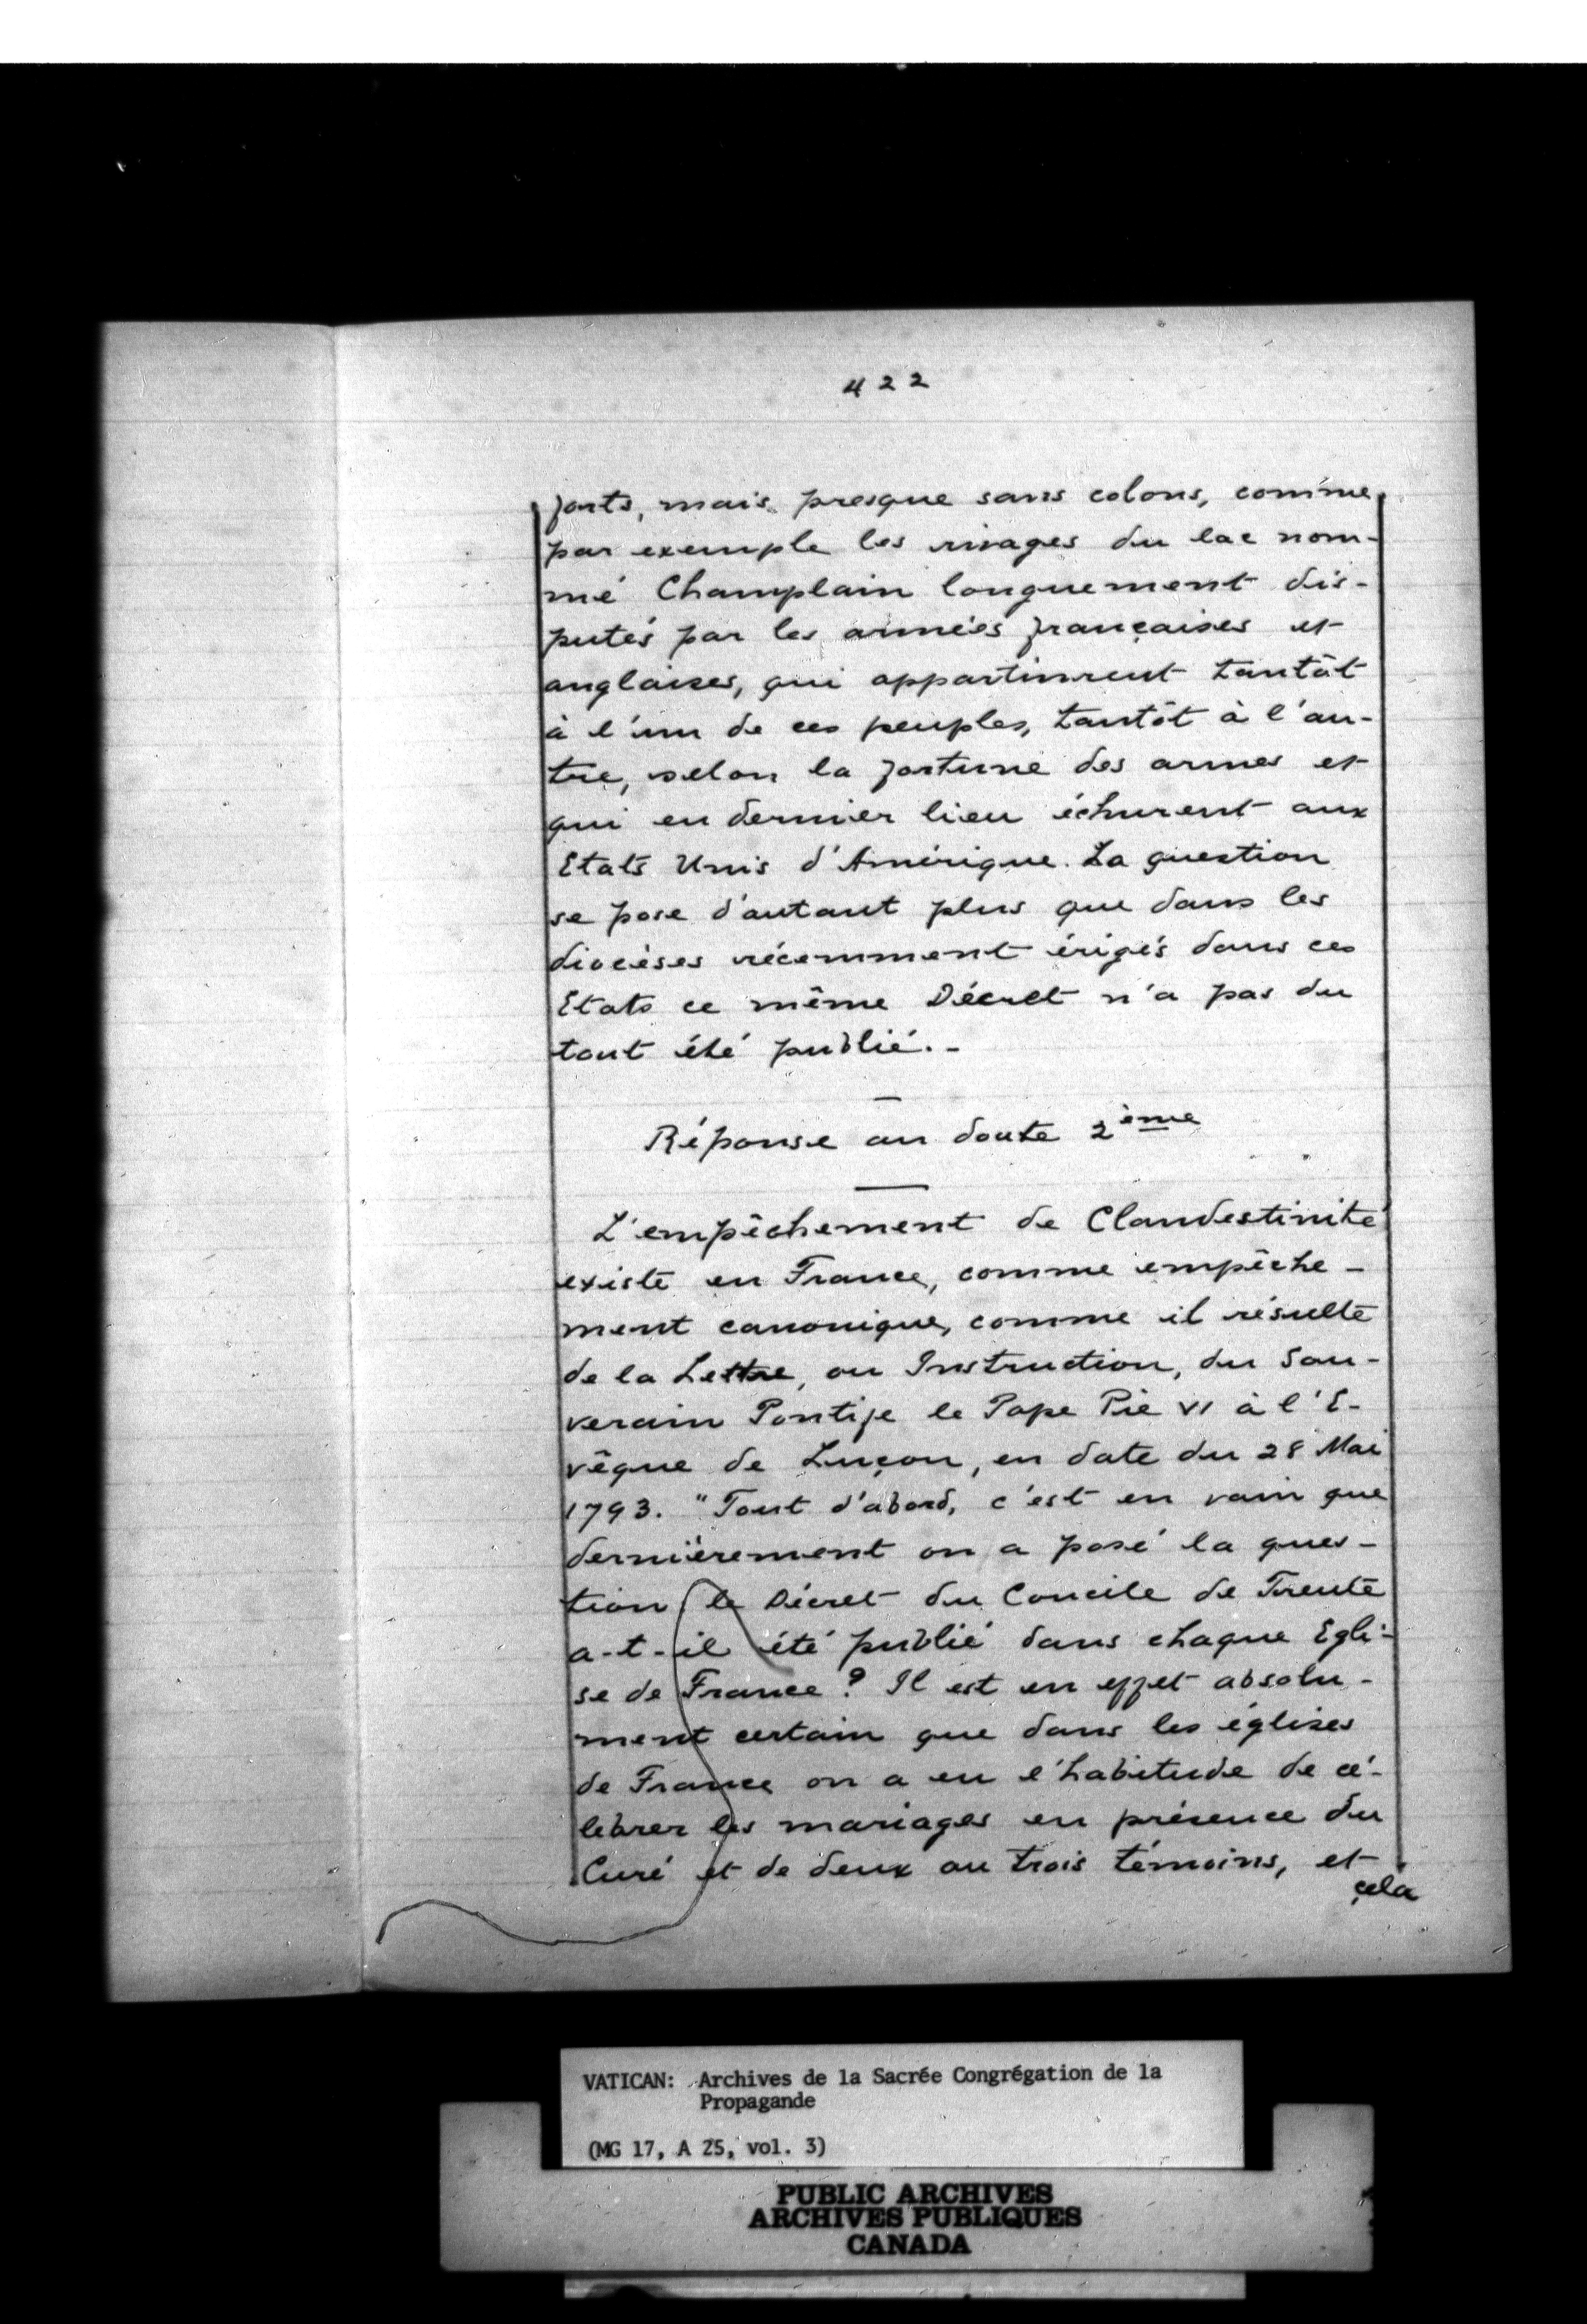 422
forts, mais presque sans colons, comme
par exemple les rivages du lac nom-
mé Champlain longuement dis-
putés par les armées françaises et
anglaises, qui appartinrent tantôt
à l'un de ces peuples, tantôt à l'au-
tre, selon la fortune des armes et
qui en dernier lieu échurent aux
Etats Unis d'Amérique. La question
se pose d'autant plus que dans les
diocèses récemment érigés dans ces
Etats ce même Décret n'a pas du
tout été publié.-
Réponse au doute 2ème
L'empêchement de Clandestinité
existe en France, comme empêche-
ment canonique, comme il résulte
de la Lettre, ou Instruction, du Sou-
verain Pontife le Pape Pie VI à l'E-
vêque de Luçon, en date du 28 Mai
1793. "Tout d'abord, c'est en vain que
dernièrement on a posé la ques-
tion le Décret du Concile de Trente
a-t-il été publié dans chaque Egli-
se de France? Il est en effet absolu-
ment certain que dans les églises
de France on a eu l'habitude de cé-
lebrer les mariages en présence du
Curé et de deux ou trois témoins, et
cela
VATICAN: Archives de la Sacrée Congrégation de la
Propagande
(MG 17, A 25, vol. 3)
PUBLIC ARCHIVES
ARCHIVES PUBLIQUES
CANADA